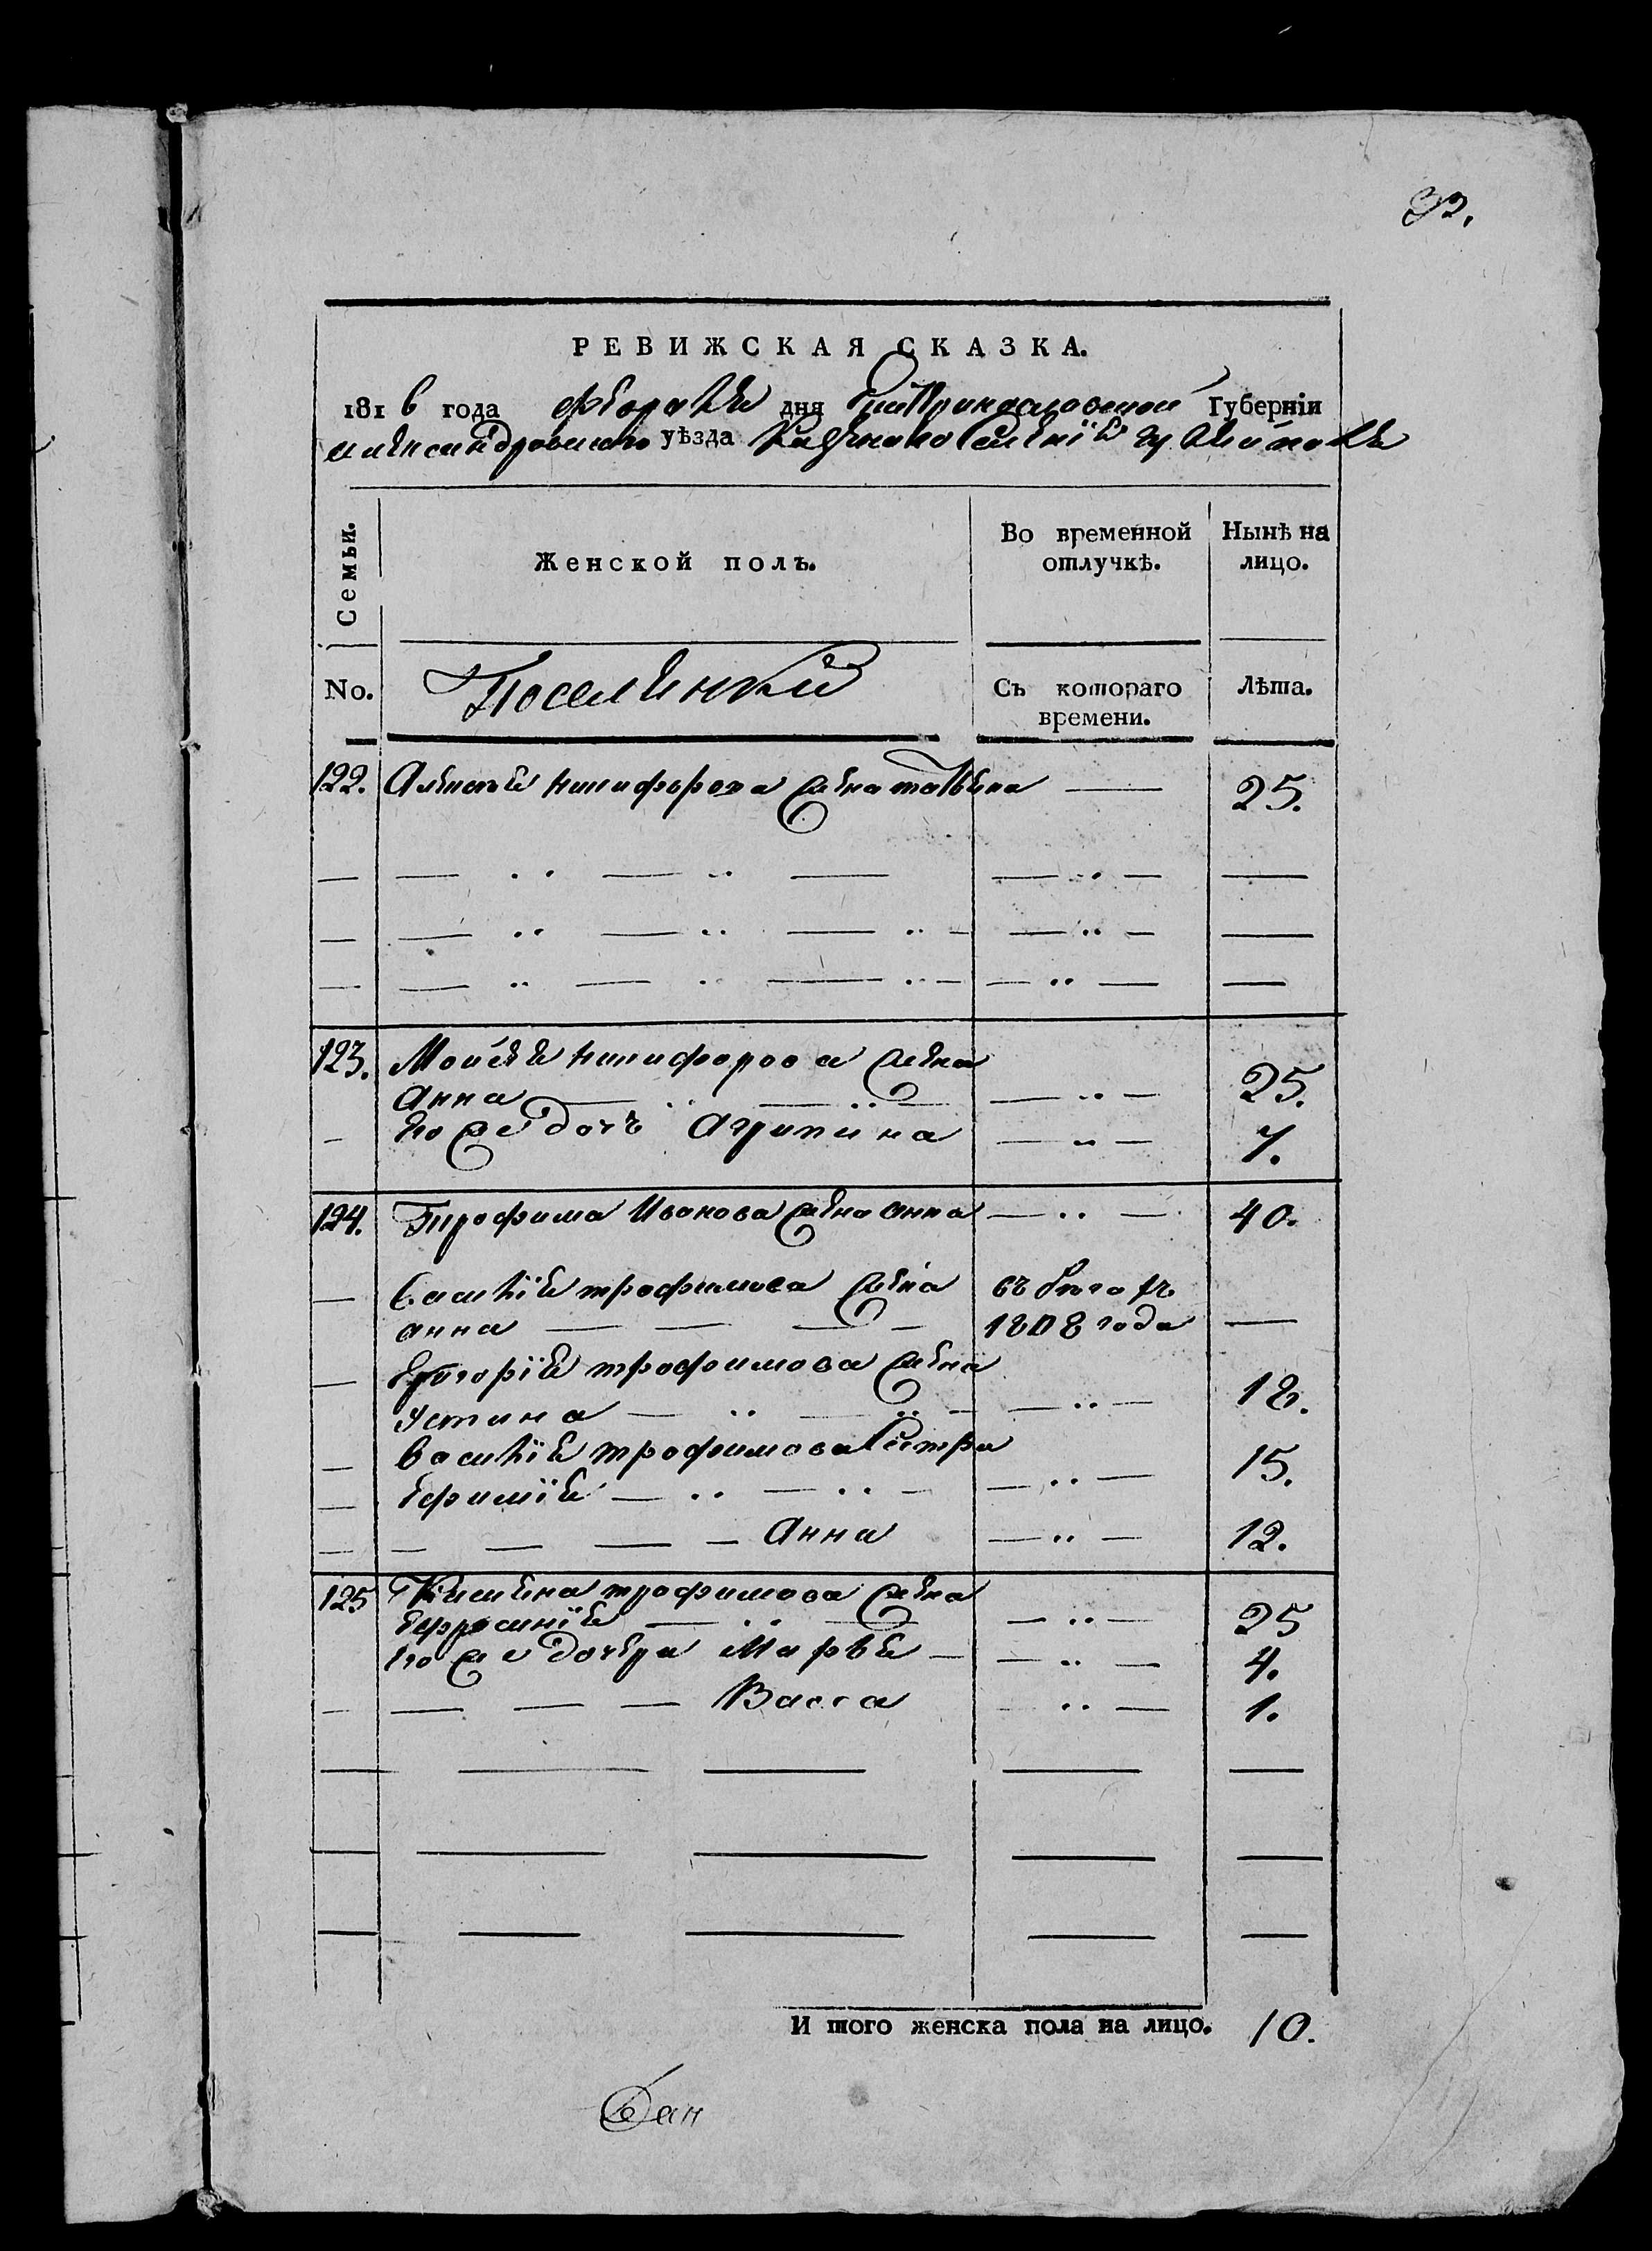 32.
РЕВИЖСКАЯ СКАЗКА.
1816 года февраля дня Екатеринославской Губерніи
александровскаго уѣзда Казенного Селенія
Семьи.
Женской полъ.
Во временной отлучкѣ.
Нынѣ на лицо.
No.
Поселянки
Съ котораго времени.
Лѣта.
122. Алексея никифорова жена татьяна — 25.
123. Мойсея никифорова жена
анна 25.
его же дочь Агрипина 7.
124. Трофима Иванова жена анна 40.
василія трофимова жена
анна 1808 года
Григорія трофимова жена
устина 18.
василія трофимова сестра
ефимія 15.
Анна 12.
125 трофимова жена
ефросинія 25
его же дочери Марья 4.
Васса 1.
И того женска пола на лицо. 10.